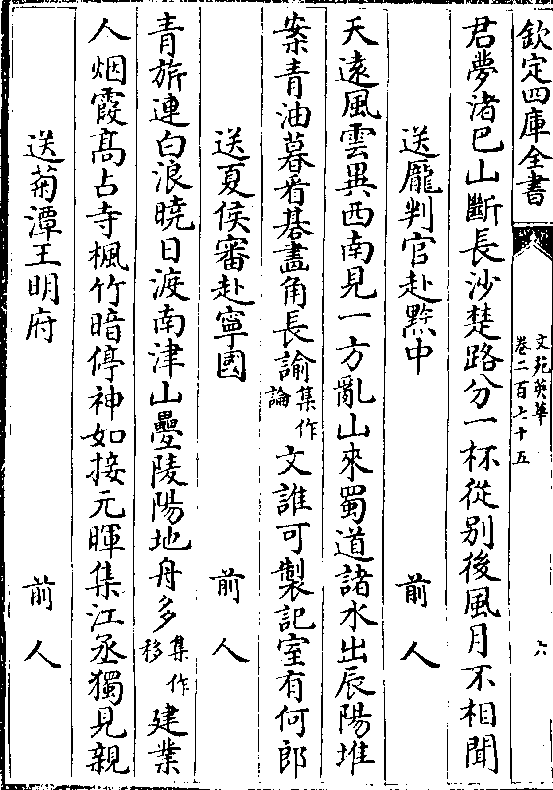 欽定四庫全書
文苑英華
卷二百七十五
六
君夢渚巴山斷長沙楚路分一杯從别後風月不相聞
送龎判官赴黔中
前人
天遠風雲異西南見一方亂山來蜀道諸水出辰陽堆
案青油暮㸔棊畫角長諭集作論文誰可製記室有何郎
送夏侯審赴寧國
前人
青旂連白浪曉日渡南津山疊陵陽地舟多集作移建業
人烟霞髙占寺楓竹暗停神如接元暉集江丞獨見親
送菊潭王明府
前人